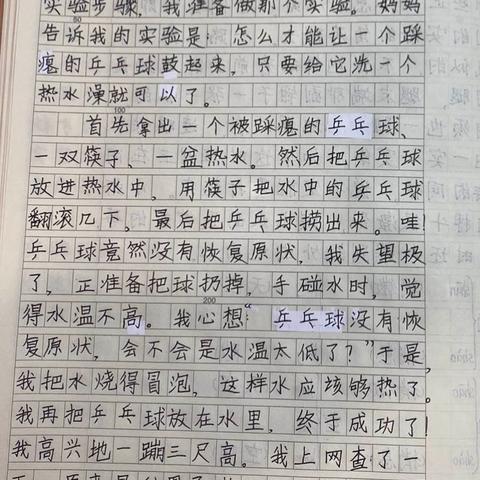 实验步骤，我准备做那个实验。妈妈
告诉我的实验是：怎么才能让一个踩
瘪的乒乓球鼓起来，只要给它洗一个
热水澡就可以了。
100
首先拿出一个被踩瘪的乒乓球、
一双筷子、一盆热水。然后把乒乓球
放进热水中，用筷子把水中的乒乓球
翻滚几下，最后把乒乓球捞出来。哇！
乒乓球竟然没有恢复原状，我失望极
了，正准备把球扔掉，手碰水时，觉
200
得水温不高。我心想：“乒乓球没有恢
复原状，会不会是水温太低了？”于是，
我把水烧得冒泡，这样水应该够热了。
我再把乒乓球放在水里，终于成功了！
我高兴地一蹦三尺高。我上网查了一